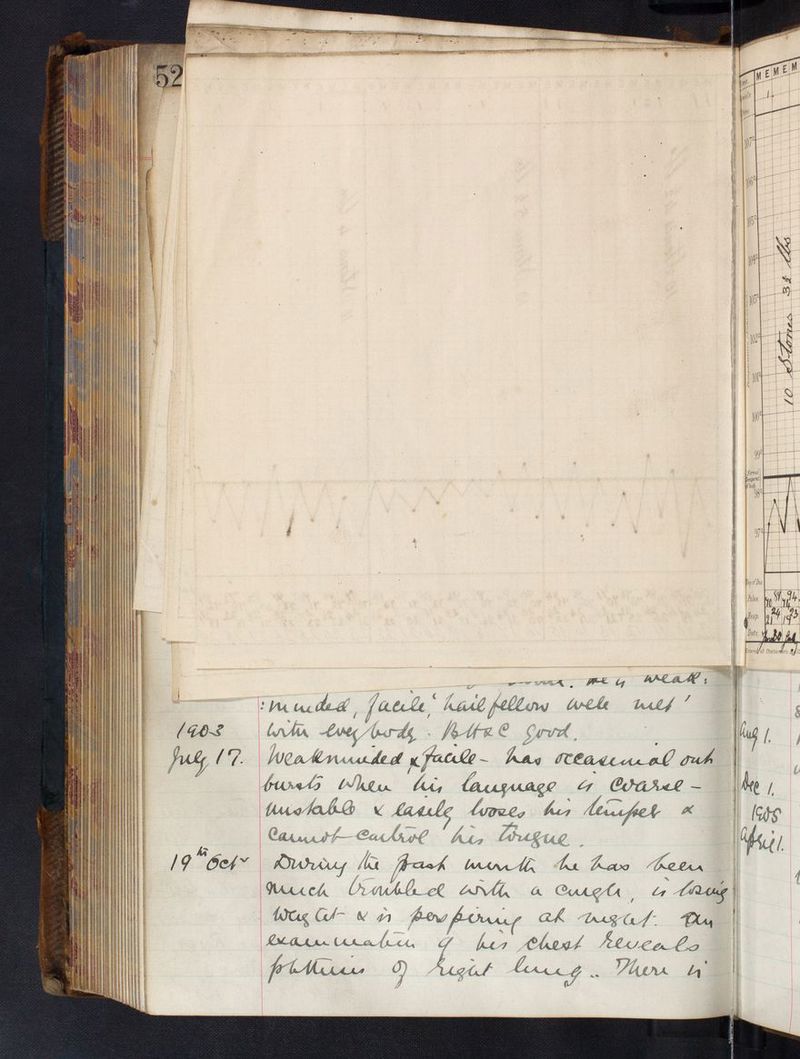 52
he is weak:
:minded, facile, 'hail fellow well met'
1903 with everybody. B H & C good.
July 17. Weakminded & facile - has occasional out
bursts when his language is coarse -
unstable & easily looses his temper &
cannot control his tongue.
19th Octr During the past month he has been
much troubled with a cough, is losing
weight & is perspiring at night. An
examination of his chest reveals
phthisis of right lung.. There is
M E M E M
107°
106°
105°
104°
103°
102°
101°
100°
99°
98°
97°
10 Stones 3½ lbs
Pulse
Resp.
Date
Aug 1.
Dec 1.
1905
April 1.